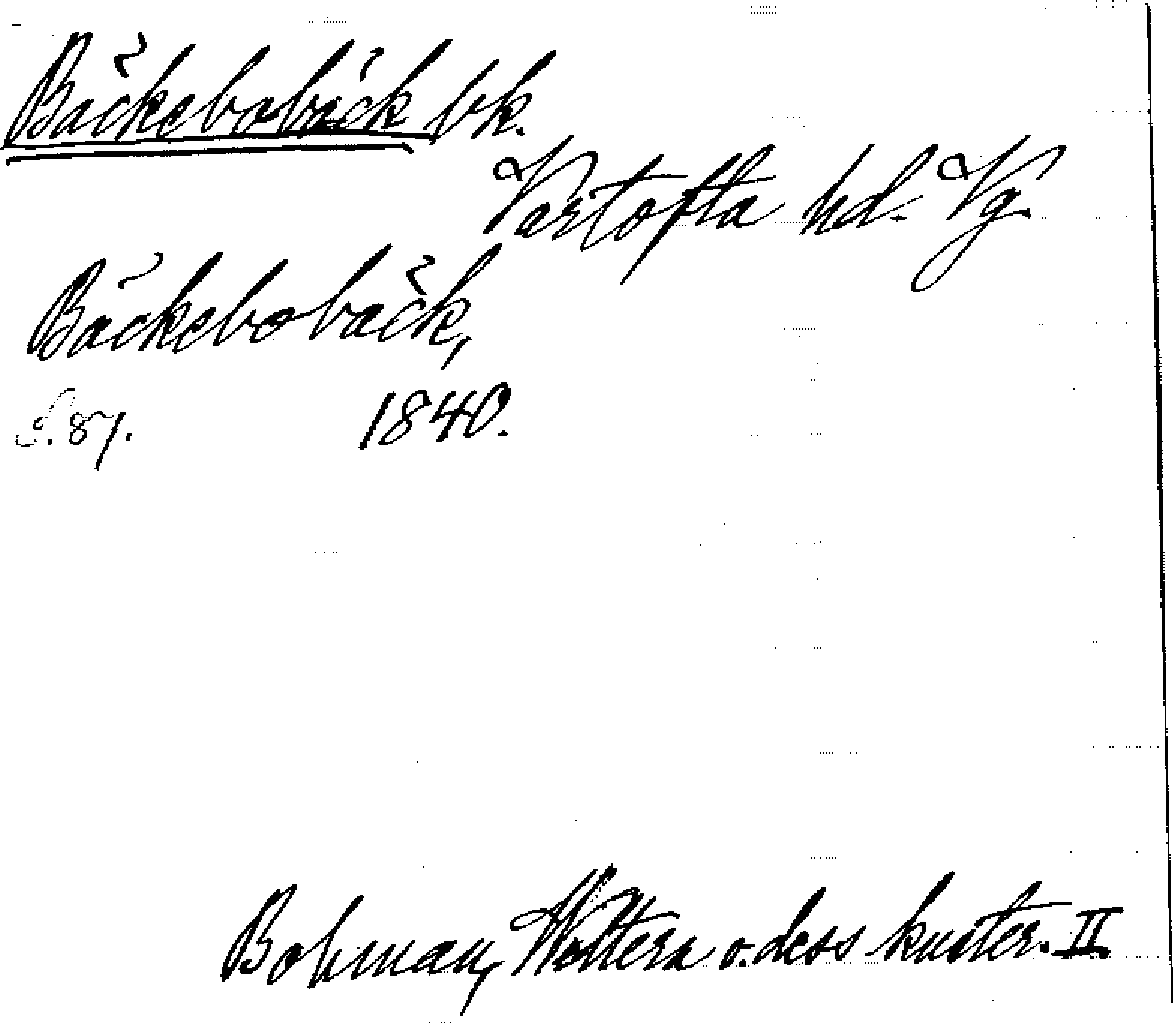 Bäckebobäck bk.
Vartofta hd. Vg.
Bäckebobäck,
S. 87. 1840.
Bohman, Wettern o. dess kuster. II